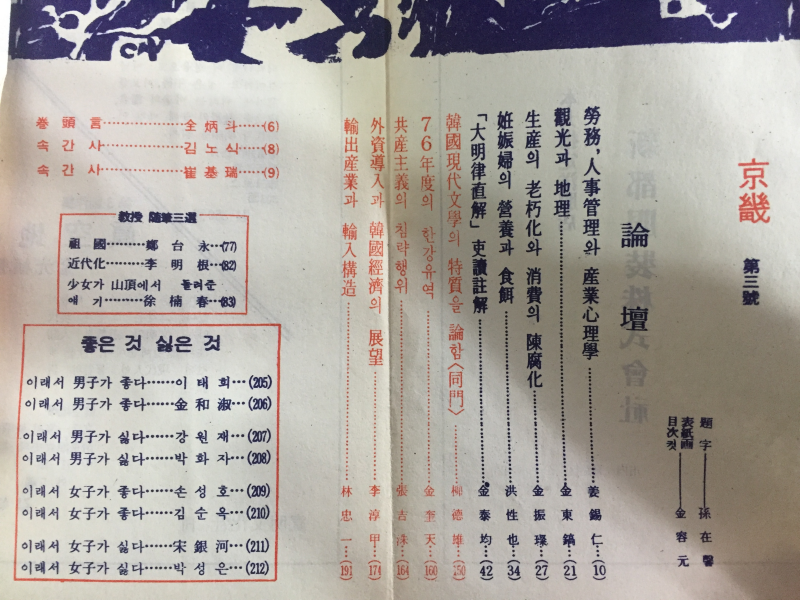 京畿
第三號
題字 孫在馨
表紙画
目次컷 金容元
論壇
勞務, 人事管理와 産業心理學 姜錫仁 (10)
觀光과 地理 金東鎬 (21)
生産의 老朽化와 消費의 陳腐化 金振環 (27)
姙娠婦의 營養과 食餌 洪性也 (34)
「大明律直解」 吏讀註解 金泰均 (42)
韓國現代文學의 特質을 論함〈同門〉 柳德雄 (150)
76年度의 한강유역 金奎天 (160)
共産主義의 침략행위 張吉 (164)
外資導入과 韓國經濟의 展望 李淳甲 (174)
輸出産業과 輸入構造 林忠一 (191)
卷頭言……………全炳斗……(6)
속간사……………김노식……(8)
속간사……………崔基瑞……(9)
教授 隨筆三選
祖國………鄭台永…(77)
近代化………李明根…(82)
少女가 山頂에서 들려준
얘기………徐楠春…(83)
좋은 것 싫은 것
이래서 男子가 좋다……이태희…(205)
이래서 男子가 좋다……金和淑…(206)
이래서 男子가 싫다……강원재…(207)
이래서 男子가 싫다……박화자…(208)
이래서 女子가 좋다……손성호…(209)
이래서 女子가 좋다……김순옥…(210)
이래서 女子가 싫다……宋銀河…(211)
이래서 女子가 싫다……박성은…(212)